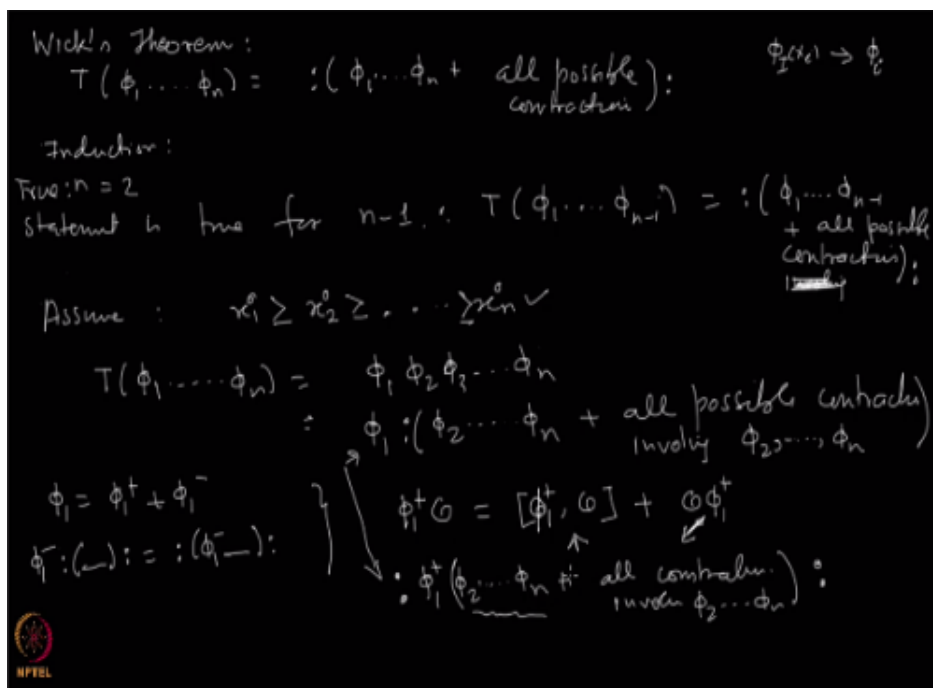 Wick's Theorem :
T ( ϕ₁ .... ϕₙ ) = :( ϕ₁ .... ϕₙ + all possible contraction ) :
ϕ_I(xᵢ) → ϕᵢ
Induction :
True : n = 2
Statement is true for n-1. : T ( ϕ₁ .... ϕₙ₋₁ ) = :( ϕ₁ .... ϕₙ₋₁
+ all possible
contractions ) :
Assume : x₁⁰ ≥ x₂⁰ ≥ . . . . ≥ xₙ⁰ ✓
T ( ϕ₁ ..... ϕₙ ) = ϕ₁ ϕ₂ ϕ₃ .... ϕₙ
= ϕ₁ :( ϕ₂ ..... ϕₙ + all possible contractn )
involvg ϕ₂, ..., ϕₙ
ϕ₁ = ϕ₁⁺ + ϕ₁⁻
ϕ₁⁺ O = [ϕ₁⁺, O] + O ϕ₁⁺
ϕ₁⁻ :(—) : = :(ϕ₁⁻ —) :
: ϕ₁⁺ ( ϕ₂ ..... ϕₙ + all contraction. ) :
involv ϕ₂ ... ϕₙ
NPTEL